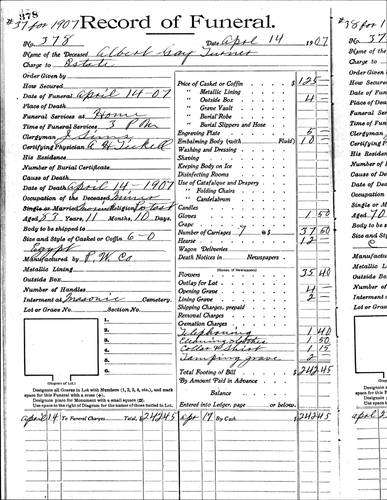 378
#37 for 1907
Record of Funeral.
No. 378 Date April 14 1907
Name of the Deceased Albert Gay Turner
Charge to Estate
Order Given by
How Secured
Date of Funeral April 14-07
Place of Death
Funeral Services at Home
Time of Funeral Services 3 P M
Clergyman
Certifying Physician A H Tickell
His Residence
Number of Burial Certificate
Cause of Death
Date of Death April 14 1907
Occupation of the Deceased Miner
Single or Married Religion
Aged 53 Years, 11 Months, 10 Days.
Body to be shipped to
Size and Style of Casket or Coffin 6-0
Egypt
Manufactured by P. W. Co
Metallic Lining
Outside Box
Number of Handles
Interment at Masonic Cemetery.
Lot or Grave No. Section No.
1.
2.
3.
4.
5.
6.
(Diagram of Lot.)
Designate all Graves in Lot with Numbers (1, 2, 3, 4, etc.), and mark
space for this Funeral with a cross (+).
Designate place for Monument with a small square (□).
Use space to the right of Diagram for the names of those buried in Lot.
Price of Casket or Coffin $ 125
" Metallic Lining
" Outside Box 4
" Grave Vault
" Burial Robe
" Burial Slippers and Hose
Engraving Plate 5
Embalming Body (with Fluid) 10
Washing and Dressing
Shaving
Keeping Body on Ice
Disinfecting Rooms
Use of Catafalque and Drapery
" Folding Chairs
" Candelabrum
Candles
Gloves 1 50
Crape
Number of Carriages 7 @ $ 37 50
Hearse 12
Wagon Deliveries
Death Notices in Newspapers
(Names of Newspapers)
Flowers 35 40
Outlay for Lot
Opening Grave 4
Lining Grave 2
Shipping Charges, prepaid
Removal Charges
Cremation Charges
Telephoning 1 40
Cleaning clothes 1 50
Collar & Shirt 1 15
Tamping grave 2
Total Footing of Bill $ 242 45
By Amount Paid in Advance
Balance
Entered into Ledger, page or below.
April 14 To Funeral Charges Total, $ 242 45 Apr 17 By Cash $ 242 45
#38 for 1
No.
Name of the
Charge to
Order Given
How Secured
Date of Funeral
Place of Death
Funeral Services
Time of Funeral
Clergyman
Certifying
His Residence
Number of
Cause of Death
Date of Death
Occupation
Single or M
Aged 70
Body to be
Size and Style
Manufactured
Metallic Lining
Outside Box
Number of
Interment at
Lot or Grave